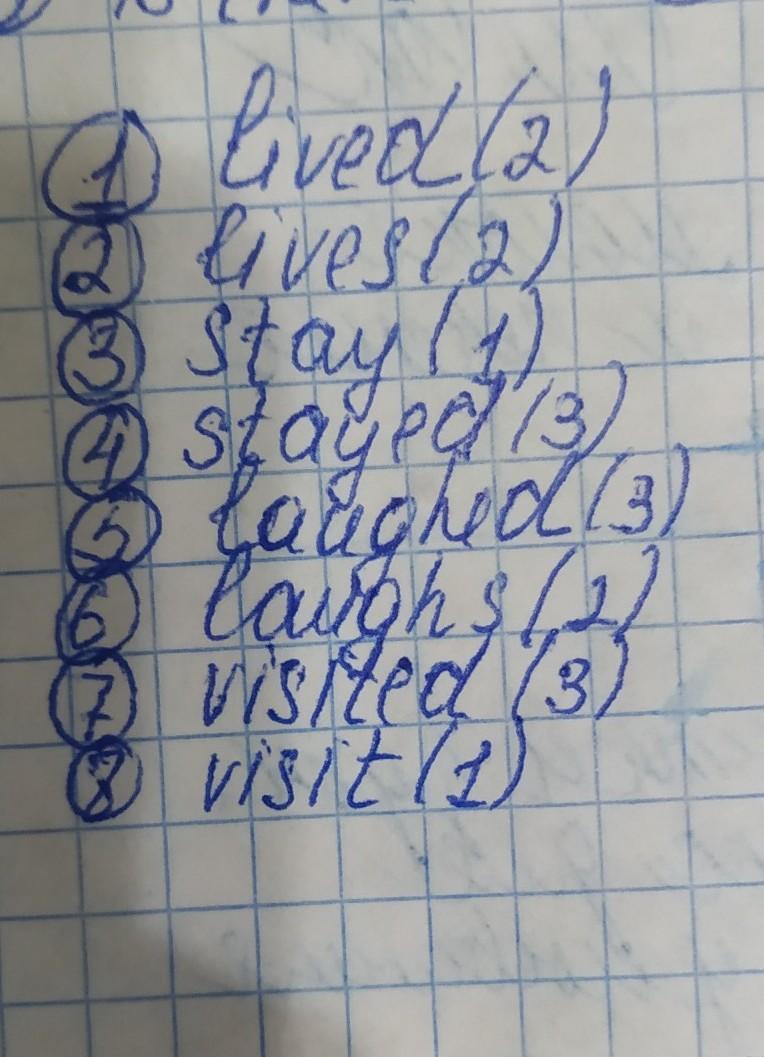 1 lived (2)
2 lives (2)
3 stay (1)
4 stayed (3)
5 laughed (3)
6 laughs (2)
7 visited (3)
8 visit (1)